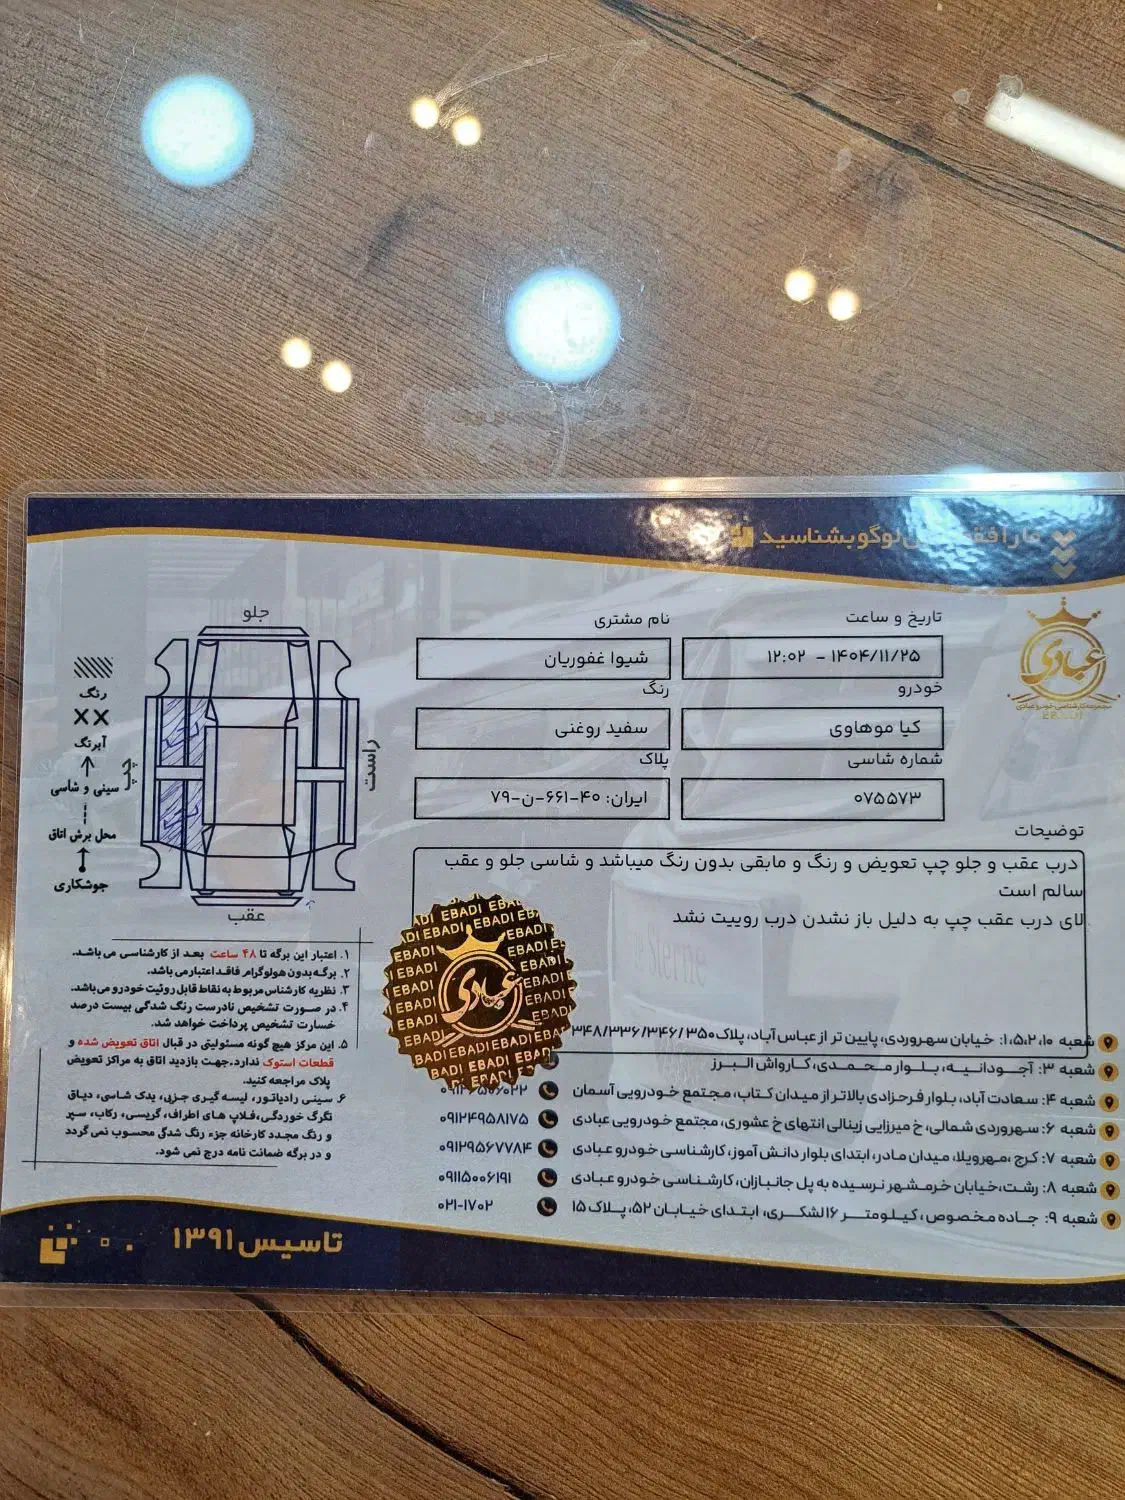 لوگو بشناسید
عبادی
مجموعه کارشناسی خودرو عبادی
EBADI
تاریخ و ساعت
۱۴۰۴/۱۱/۲۵ - ۱۲:۰۲
نام مشتری
شیوا غفوریان
خودرو
کیا موهاوی
رنگ
سفید روغنی
شماره شاسی
۰۷۵۵۷۳
پلاک
ایران: ۴۰-۶۶۱-ن-۷۹
توضیحات
درب عقب و جلو چپ تعویض و رنگ و مابقی بدون رنگ میباشد و شاسی جلو و عقب
سالم است
لای درب عقب چپ به دلیل باز نشدن درب روییت نشد
جلو
راست
چپ
عقب
رنگ
آبرنگ
سینی و شاسی
محل برش اتاق
جوشکاری
۱. اعتبار این برگه تا ۴۸ ساعت بعد از کارشناسی می باشد.
۲. برگه بدون هولوگرام فاقد اعتبار می باشد.
۳. نظریه کارشناس مربوط به نقاط قابل روئیت خودرو می‌باشد.
۴. در صورت تشخیص نادرست رنگ شدگی بیست درصد
خسارت تشخیص پرداخت خواهد شد.
۵. این مرکز هیچ گونه مسئولیتی در قبال اتاق تعویض شده و
قطعات استوک ندارد.جهت بازدید اتاق به مراکز تعویض
پلاک مراجعه کنید.
۶. سینی رادیاتور، لیسه گیری جزیی، یدک شاسی، دیاق
تگرگ خوردگی، فلاپ های اطراف، گریسی، رکاب، سپر
و رنگ مجدد کارخانه جزء رنگ شدگی محسوب نمی گردد
و در برگه ضمانت نامه درج نمی شود.
EBADI
عبادی
شعبه ۱،۵،۲،۱۰: خیابان سهروردی، پایین تر از عباس آباد، پلاک ۳۴۸/۳۳۶/۳۴۶/۳۵۰
شعبه ۳: آجودانیه، بلوار محمدی، کارواش البرز
شعبه ۴: سعادت آباد، بلوار فرحزادی بالاتر از میدان کتاب، مجتمع خودرویی آسمان
شعبه ۶: سهروردی شمالی، خ میرزایی زینالی انتهای خ عشوری، مجتمع خودرویی عبادی ۰۹۱۲۴۹۵۸۱۷۵
شعبه ۷: کرج ،مهرویلا، میدان مادر، ابتدای بلوار دانش آموز، کارشناسی خودرو عبادی ۰۹۱۲۹۵۶۷۷۸۴
شعبه ۸: رشت،خیابان خرمشهر نرسیده به پل جانبازان، کارشناسی خودرو عبادی ۰۹۱۱۵۰۰۶۱۹۱
شعبه ۹: جاده مخصوص، کیلومتر ۱۶ لشکری، ابتدای خیابان ۵۲، پلاک ۱۵ ۰۲۱-۱۷۰۲
تاسیس ۱۳۹۱